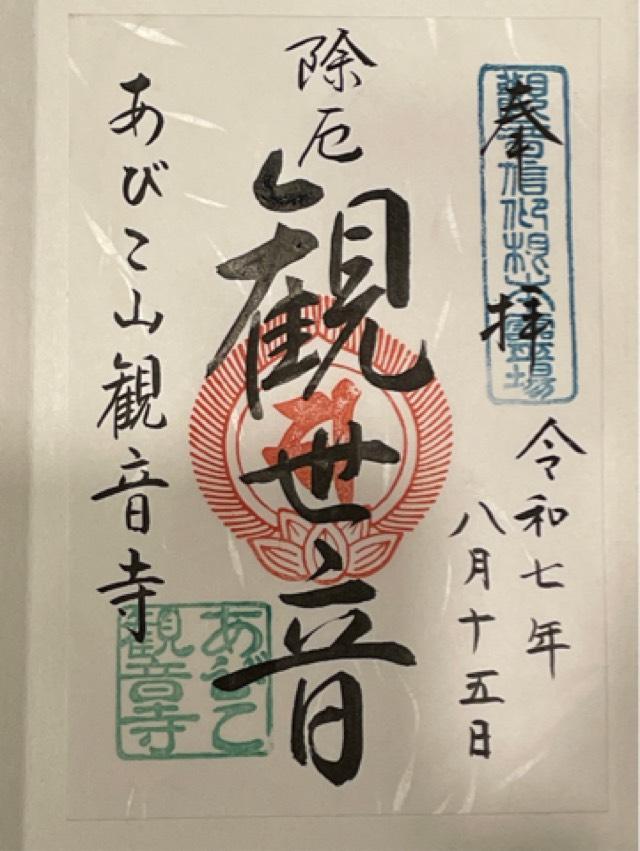 奉拝
観音信仰根本霊場
令和七年
八月十五日
除厄
観世音
あびこ山観音寺
あびこ
観音寺